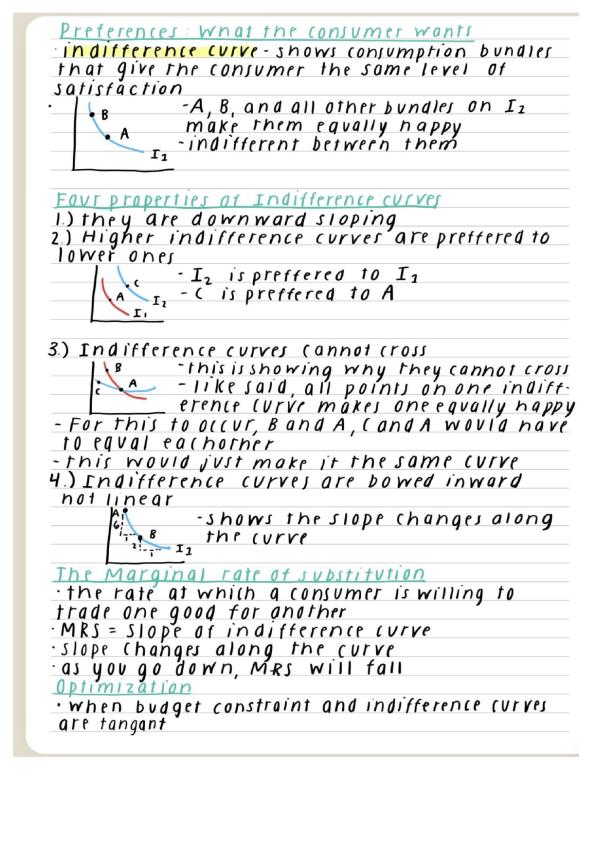 Preferences: What the consumer wants
· indifference curve - shows consumption bundles
that give the consumer the same level of
satisfaction
B
A
I₁
- A, B, and all other bundles on I₂
make them equally happy
- indifferent between them
Four properties of Indifference curves
1.) they are downward sloping
2.) Higher indifference curves are preffered to
lower ones
C
A
I₂
I₁
- I₂ is preffered to I₁
- C is preffered to A
3.) Indifference curves cannot cross
B
A
C
- this is showing why they cannot cross
- like said, all points on one indiff-
erence curve makes one equally happy
- For this to occur, B and A, C and A would have
to equal eachother
- this would just make it the same curve
4.) Indifference curves are bowed inward
not linear
A
6
1
B
2
1
I₁
- shows the slope changes along
the curve
The Marginal rate of substitution
· the rate at which a consumer is willing to
trade one good for another
· MRS = slope of indifference curve
· slope changes along the curve
· as you go down, MRS will fall
Optimization
· when budget constraint and indifference curves
are tangant